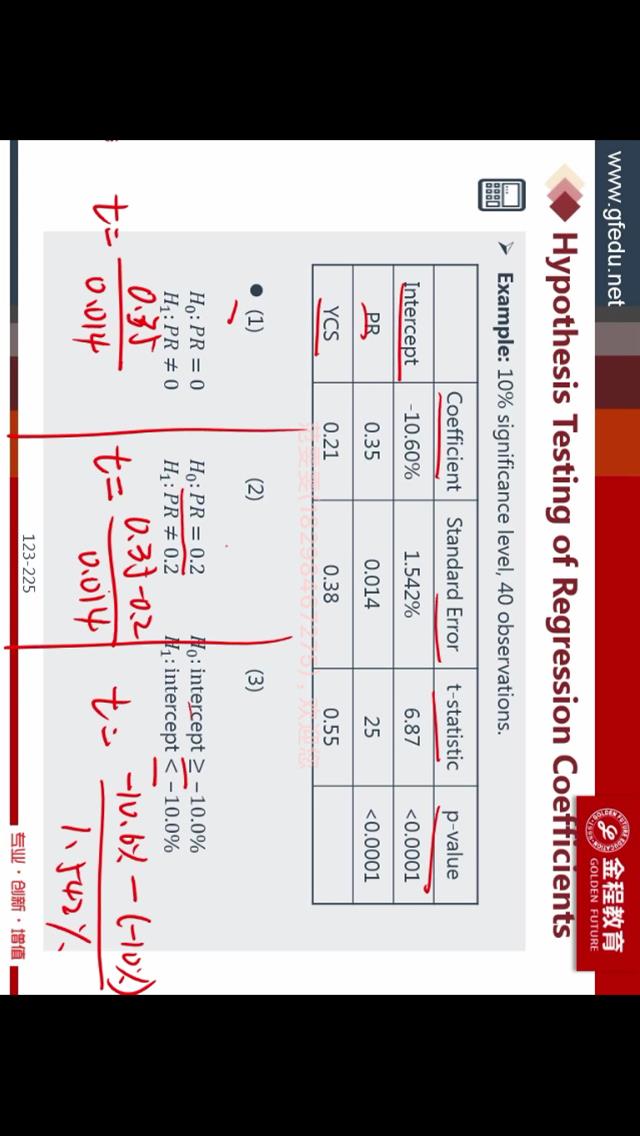 www.gfedu.net
金程教育
GOLDEN FUTURE
Hypothesis Testing of Regression Coefficients
➤ Example: 10% significance level, 40 observations.
Coefficient Standard Error t-statistic p-value
Intercept -10.60% 1.542% 6.87 <0.0001
PR 0.35 0.014 25 <0.0001
YCS 0.21 0.38 0.55
● (1) (2) (3)
H₀: PR = 0 H₀: PR = 0.2 H₀: intercept ≥ −10.0%
H₁: PR ≠ 0 H₁: PR ≠ 0.2 H₁: intercept < −10.0%
t= 0.35 / 0.014 t= 0.35-0.2 / 0.014 t= -10.6% - (-10%) / 1.542%
123-225
专业·创新·增值